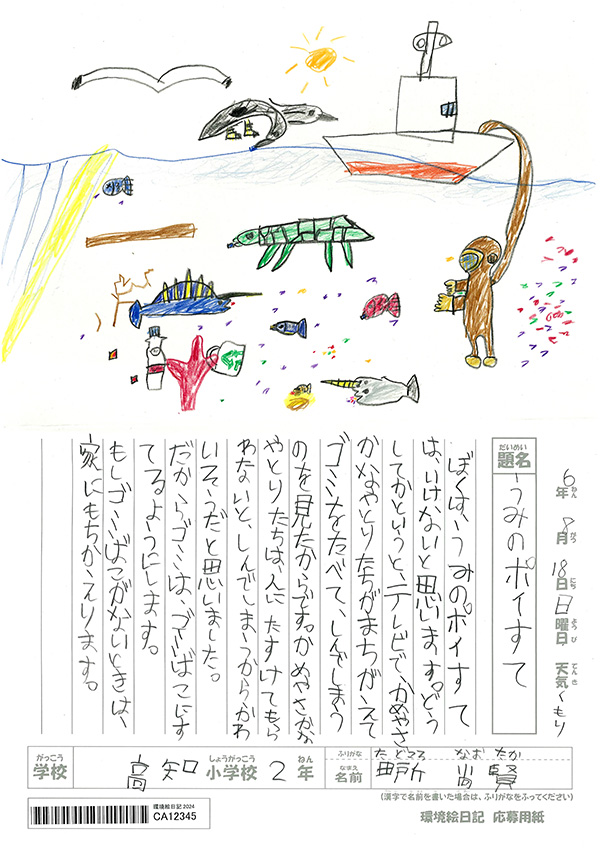 6年 8月 18日 日曜日 天気くもり
ねん がつ にち ようび てんき
だいめい
題名
うみのポイすて
ぼくは、うみのポイすて
は、いけないと思います。どう
してかというと、テレビで、かめやさ
かなやとりたちがまちがえて
ゴミをたべて、しんでしまう
のを見たからです。かめやさかな
やとりたちは、人にたすけてもら
わないと、しんでしまうから、かわ
いそうだと思いました。
だからゴミは、ゴミばこにす
てるようにします。
もしゴミばこがないときは、
家にもちかえります。
がっこう しょうがっこう ねん
学校 高知 小学校 2年
ふりがな たどころ なおたか
なまえ
名前 田所 尚賢
(漢字で名前を書いた場合は、ふりがなをふってください)
環境絵日記2024
CA12345
環境絵日記 応募用紙